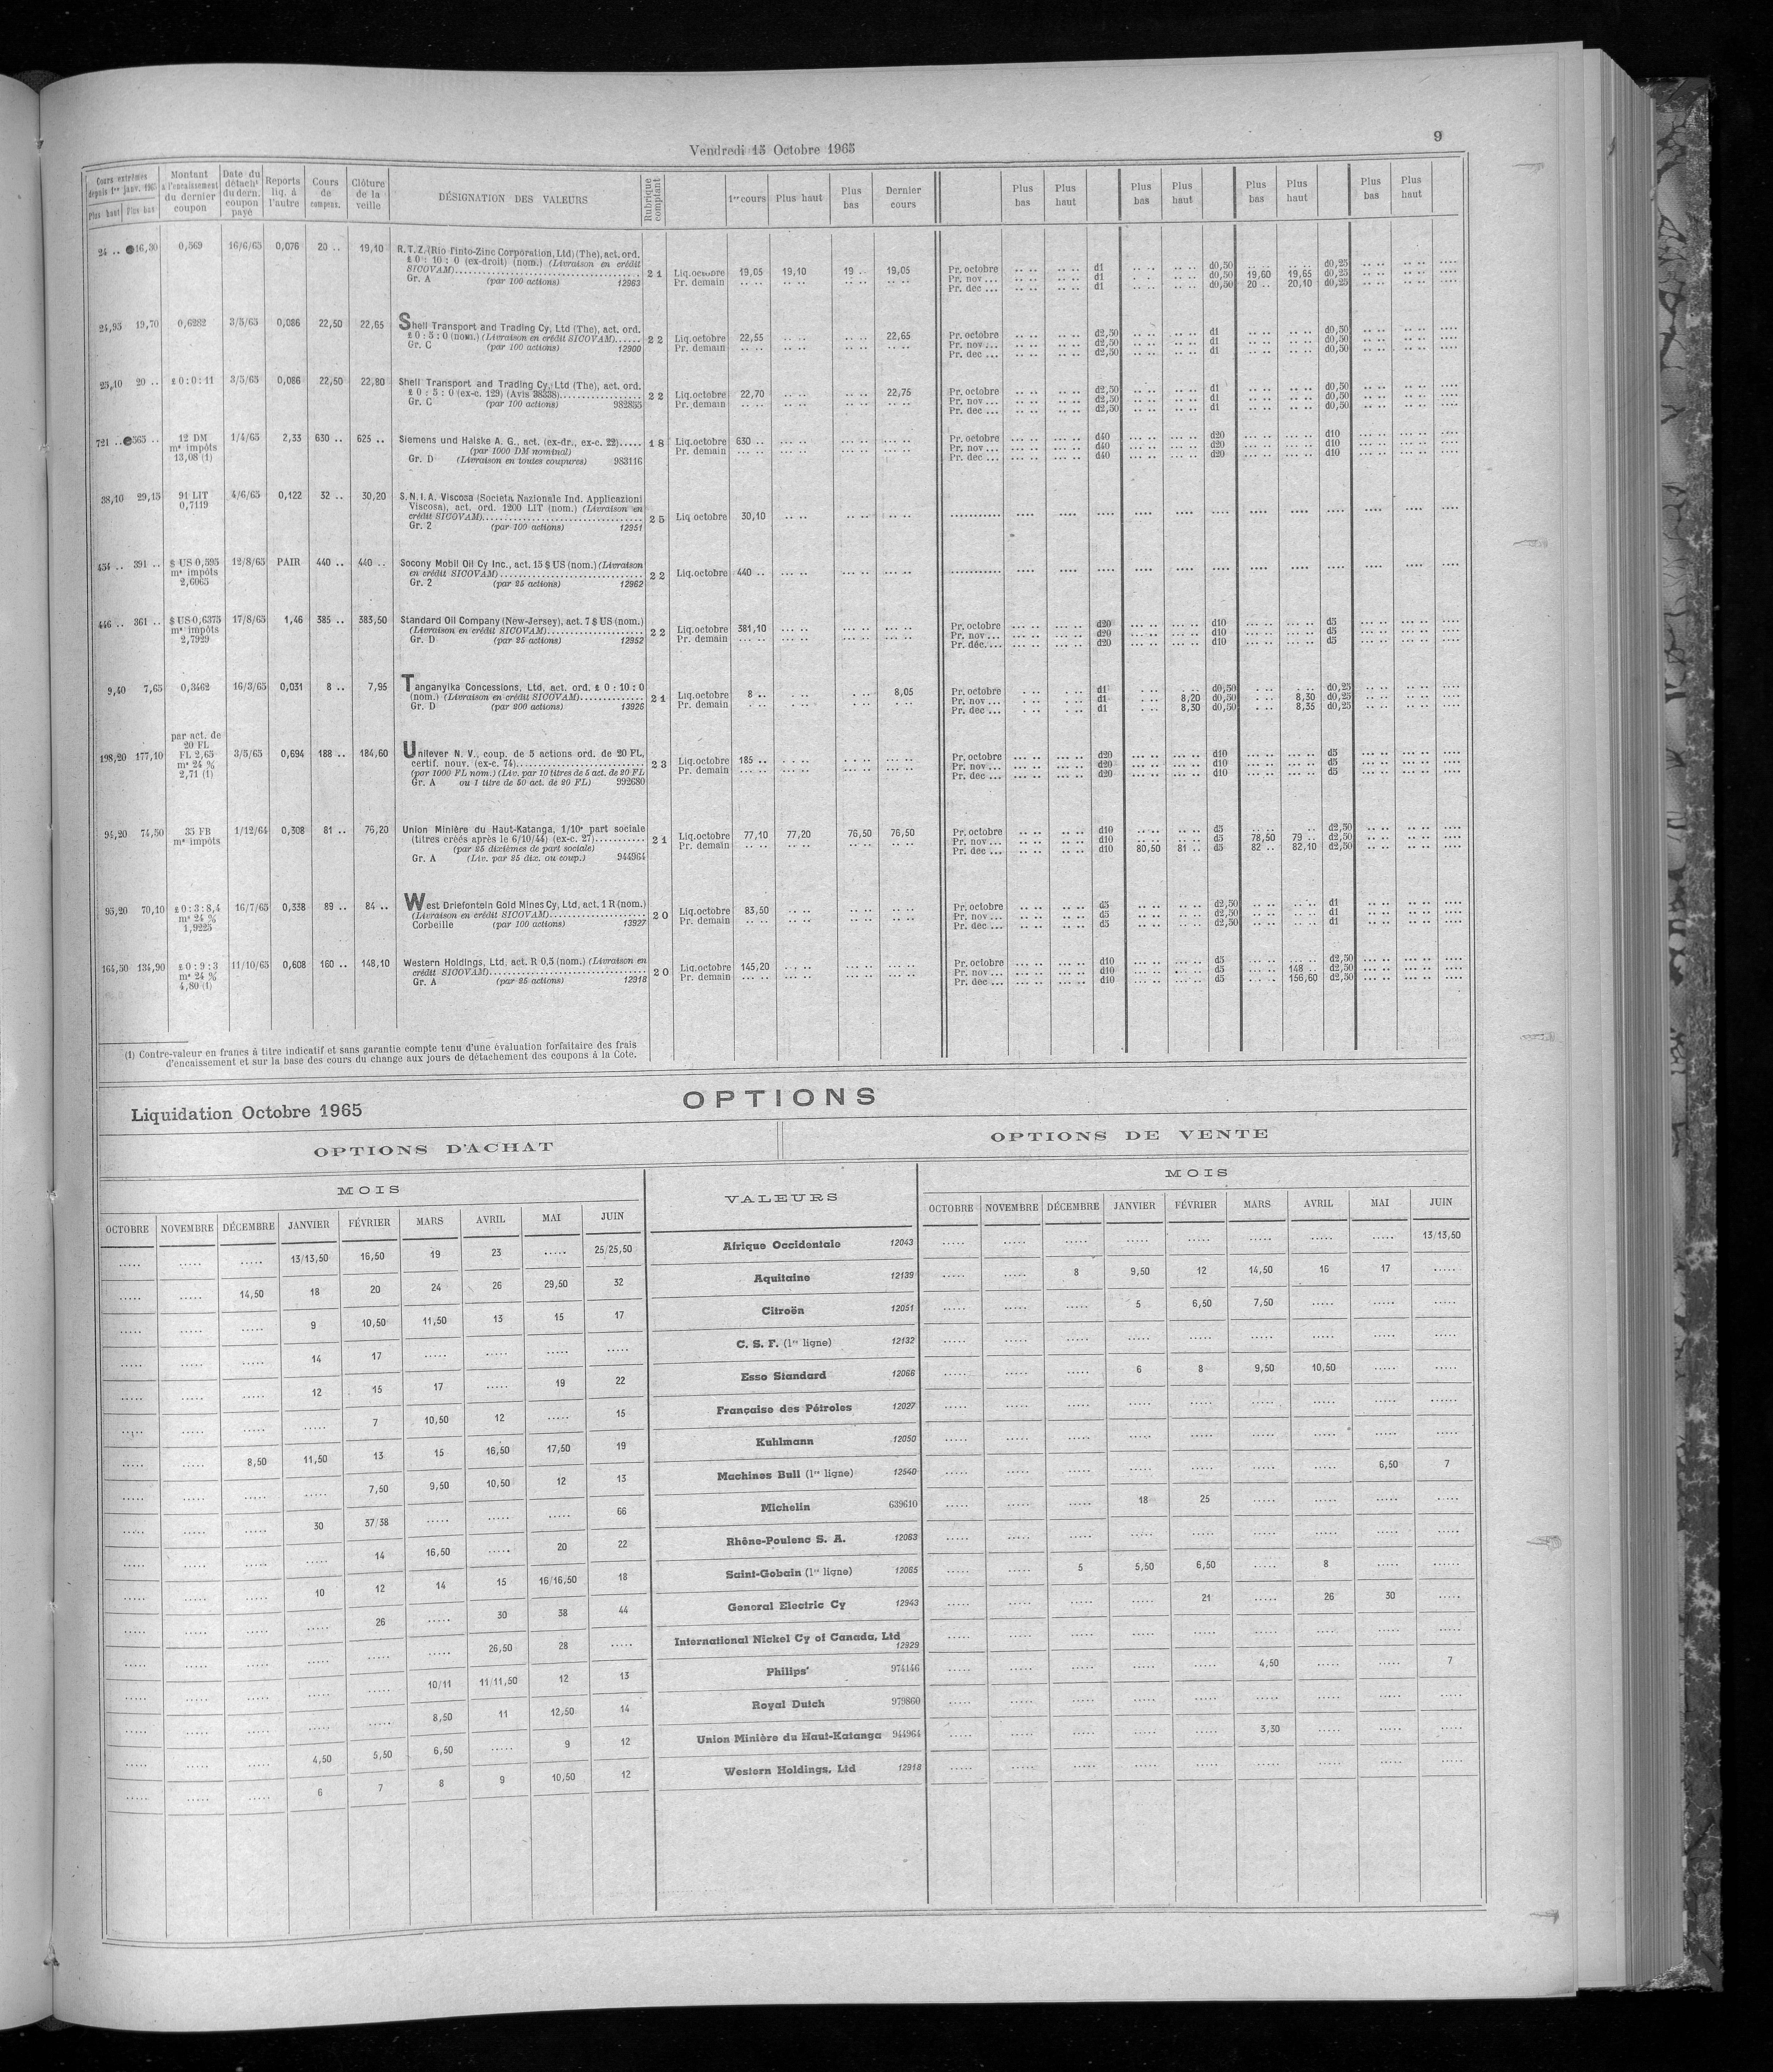 Vendredi 15 Octobre 1965
9
Cours extrêmes depuis 1er janv. 1965 Plus haut Plus bas
Montant à l'encaissement du dernier coupon
Date du détacht du dern. coupon payé
Reports liq. à l'autre
Cours de compens.
Clôture de la veille
DÉSIGNATION DES VALEURS
Rubrique comptant
1er cours Plus haut Plus bas Dernier cours
Plus bas Plus haut Plus bas Plus haut Plus bas Plus haut Plus bas Plus haut
24 .. 16,30 0,569 16/6/65 0,076 20 .. 19,10 R.T.Z. (Rio Tinto-Zinc Corporation, Ltd) (The), act. ord.
£ 0 : 10 : 0 (ex-droit) (nom.) (Livraison en crédit
SICOVAM) 21 Liq. octobre 19,05 19,10 19 .. 19,05 Pr. octobre d1 d0,50 d0,25
Gr. A (par 100 actions) 12963 Pr. demain Pr. nov ... d1 d0,50 19,60 19,65 d0,25
Pr. dec ... d1 d0,50 20 .. 20,10 d0,25
24,95 19,70 0,6282 3/5/65 0,086 22,50 22,65 Shell Transport and Trading Cy, Ltd (The), act. ord.
£ 0 : 5 : 0 (nom.) (Livraison en crédit SICOVAM) 22 Liq. octobre 22,55 22,65 Pr. octobre d2,50 d1 d0,50
Gr. C (par 100 actions) 12900 Pr. demain Pr. nov ... d2,50 d1 d0,50
Pr. dec ... d2,50 d1 d0,50
25,10 20 .. £ 0 : 0 : 11 3/5/65 0,086 22,50 22,80 Shell Transport and Trading Cy, Ltd (The), act. ord.
£ 0 : 5 : 0 (ex-c. 129) (Avis 38338) 22 Liq. octobre 22,70 22,75 Pr. octobre d2,50 d1 d0,50
Gr. C (par 100 actions) 982855 Pr. demain Pr. nov ... d2,50 d1 d0,50
Pr. dec ... d2,50 d1 d0,50
721 .. 565 .. 12 DM 1/4/65 2,33 630 .. 625 .. Siemens und Halske A. G., act. (ex-dr., ex-c. 22) 18 Liq. octobre 630 .. Pr. octobre d40 d20 d10
ms impôts (par 1000 DM nominal) Pr. demain Pr. nov ... d40 d20 d10
13,08 (1) Gr. D (Livraison en toutes coupures) 983116 Pr. dec ... d40 d20 d10
38,10 29,15 91 LIT 4/6/65 0,122 32 .. 30,20 S. N. I. A. Viscosa (Societa Nazionale Ind. Applicazioni
0,7119 Viscosa), act. ord. 1200 LIT (nom.) (Livraison en
crédit SICOVAM) 25 Liq octobre 30,10
Gr. 2 (par 100 actions) 12951
454 .. 391 .. $ US 0,595 12/8/65 PAIR 440 .. 440 .. Socony Mobil Oil Cy Inc., act. 15 $ US (nom.) (Livraison
ms impôts en crédit SICOVAM) 22 Liq. octobre 440 ..
2,6065 Gr. 2 (par 25 actions) 12962
446 .. 361 .. $ US 0,6375 17/8/65 1,46 385 .. 383,50 Standard Oil Company (New-Jersey), act. 7 $ US (nom.)
ms impôts (Livraison en crédit SICOVAM) 22 Liq. octobre 381,10 Pr. octobre d20 d10 d5
2,7929 Gr. D (par 25 actions) 12952 Pr. demain Pr. nov ... d20 d10 d5
Pr. déc. ... d20 d10 d5
9,40 7,65 0,3462 16/3/65 0,031 8 .. 7,95 Tanganyika Concessions, Ltd, act. ord. £ 0 : 10 : 0
(nom.) (Livraison en crédit SICOVAM) 21 Liq. octobre 8 .. 8,05 Pr. octobre d1 d0,50 d0,25
Gr. D (par 200 actions) 13926 Pr. demain Pr. nov ... d1 8,20 d0,50 8,30 d0,25
Pr. dec ... d1 8,30 d0,50 8,35 d0,25
par act. de
20 FL
198,20 177,10 FL 2,65 3/5/65 0,694 188 .. 184,60 Unilever N. V., coup. de 5 actions ord. de 20 FL,
ms 24 % certif. nouv. (ex-c. 74) 23 Liq. octobre 185 .. Pr. octobre d20 d10 d5
2,71 (1) (par 1000 FL nom.) (Liv. par 10 titres de 5 act. de 20 FL Pr. demain Pr. nov ... d20 d10 d5
Gr. A ou 1 titre de 50 act. de 20 FL) 992680 Pr. dec ... d20 d10 d5
94,20 74,50 35 FB 1/12/64 0,308 81 .. 76,20 Union Minière du Haut-Katanga, 1/10e part sociale
ms impôts (titres créés après le 6/10/44) (ex-c. 27) 21 Liq. octobre 77,10 77,20 76,50 76,50 Pr. octobre d10 d5 d2,50
(par 25 dixièmes de part sociale) Pr. demain Pr. nov ... d10 d5 78,50 79 .. d2,50
Gr. A (Liv. par 25 dix. ou coup.) 944964 Pr. dec ... d10 80,50 81 .. d5 82 .. 82,10 d2,50
95,20 70,10 £ 0 : 3 : 8,4 16/7/65 0,338 89 .. 84 .. West Driefontein Gold Mines Cy, Ltd, act. 1 R (nom.)
ms 24 % (Livraison en crédit SICOVAM) 20 Liq. octobre 83,50 Pr. octobre d5 d2,50 d1
1,9225 Corbeille (par 100 actions) 13927 Pr. demain Pr. nov ... d5 d2,50 d1
Pr. dec ... d5 d2,50 d1
164,50 134,90 £ 0 : 9 : 3 11/10/65 0,608 160 .. 148,10 Western Holdings, Ltd, act. R 0,5 (nom.) (Livraison en
ms 24 % crédit SICOVAM) 20 Liq. octobre 145,20 Pr. octobre d10 d5 d2,50
4,80 (1) Gr. A (par 25 actions) 12918 Pr. demain Pr. nov ... d10 d5 148 .. d2,50
Pr. dec ... d10 d5 156,60 d2,50
(1) Contre-valeur en francs à titre indicatif et sans garantie compte tenu d'une évaluation forfaitaire des frais
d'encaissement et sur la base des cours du change aux jours de détachement des coupons à la Cote.
OPTIONS
Liquidation Octobre 1965
OPTIONS D'ACHAT
OPTIONS DE VENTE
MOIS
VALEURS
MOIS
OCTOBRE NOVEMBRE DÉCEMBRE JANVIER FÉVRIER MARS AVRIL MAI JUIN
OCTOBRE NOVEMBRE DÉCEMBRE JANVIER FÉVRIER MARS AVRIL MAI JUIN
..... ..... ..... 13/13,50 16,50 19 23 ..... 25/25,50 Afrique Occidentale 12043 ..... ..... ..... ..... ..... ..... ..... ..... 13/13,50
..... ..... 14,50 18 20 24 26 29,50 32 Aquitaine 12139 ..... ..... 8 9,50 12 14,50 16 17 .....
..... ..... ..... 9 10,50 11,50 13 15 17 Citroën 12051 ..... ..... ..... 5 6,50 7,50 ..... ..... .....
..... ..... ..... 14 17 ..... ..... ..... ..... C. S. F. (1re ligne) 12132 ..... ..... ..... ..... ..... ..... ..... ..... .....
..... ..... ..... 12 15 17 ..... 19 22 Esso Standard 12066 ..... ..... ..... 6 8 9,50 10,50 ..... .....
..... ..... ..... ..... 7 10,50 12 ..... 15 Française des Pétroles 12027 ..... ..... ..... ..... ..... ..... ..... ..... .....
..... ..... 8,50 11,50 13 15 16,50 17,50 19 Kuhlmann 12050 ..... ..... ..... ..... ..... ..... ..... ..... .....
..... ..... ..... ..... 7,50 9,50 10,50 12 13 Machines Bull (1re ligne) 12540 ..... ..... ..... ..... ..... ..... ..... 6,50 7
..... ..... ..... 30 37/38 ..... ..... ..... 66 Michelin 639610 ..... ..... ..... 18 25 ..... ..... ..... .....
..... ..... ..... ..... 14 16,50 ..... 20 22 Rhône-Poulenc S. A. 12063 ..... ..... ..... ..... ..... ..... ..... ..... .....
..... ..... ..... 10 12 14 15 16/16,50 18 Saint-Gobain (1re ligne) 12065 ..... ..... 5 5,50 6,50 ..... 8 ..... .....
..... ..... ..... ..... 26 ..... 30 38 44 General Electric Cy 12943 ..... ..... ..... ..... 21 ..... 26 30 .....
..... ..... ..... ..... ..... ..... 26,50 28 ..... International Nickel Cy of Canada, Ltd 12929 ..... ..... ..... ..... ..... ..... ..... ..... .....
..... ..... ..... ..... ..... 10/11 11/11,50 12 13 Philips' 974146 ..... ..... ..... ..... ..... 4,50 ..... ..... 7
..... ..... ..... ..... ..... 8,50 11 12,50 14 Royal Dutch 979860 ..... ..... ..... ..... ..... ..... ..... ..... .....
..... ..... ..... 4,50 5,50 6,50 ..... 9 12 Union Minière du Haut-Katanga 944964 ..... ..... ..... ..... ..... 3,30 ..... ..... .....
..... ..... ..... 6 7 8 9 10,50 12 Western Holdings, Ltd 12918 ..... ..... ..... ..... ..... ..... ..... ..... .....